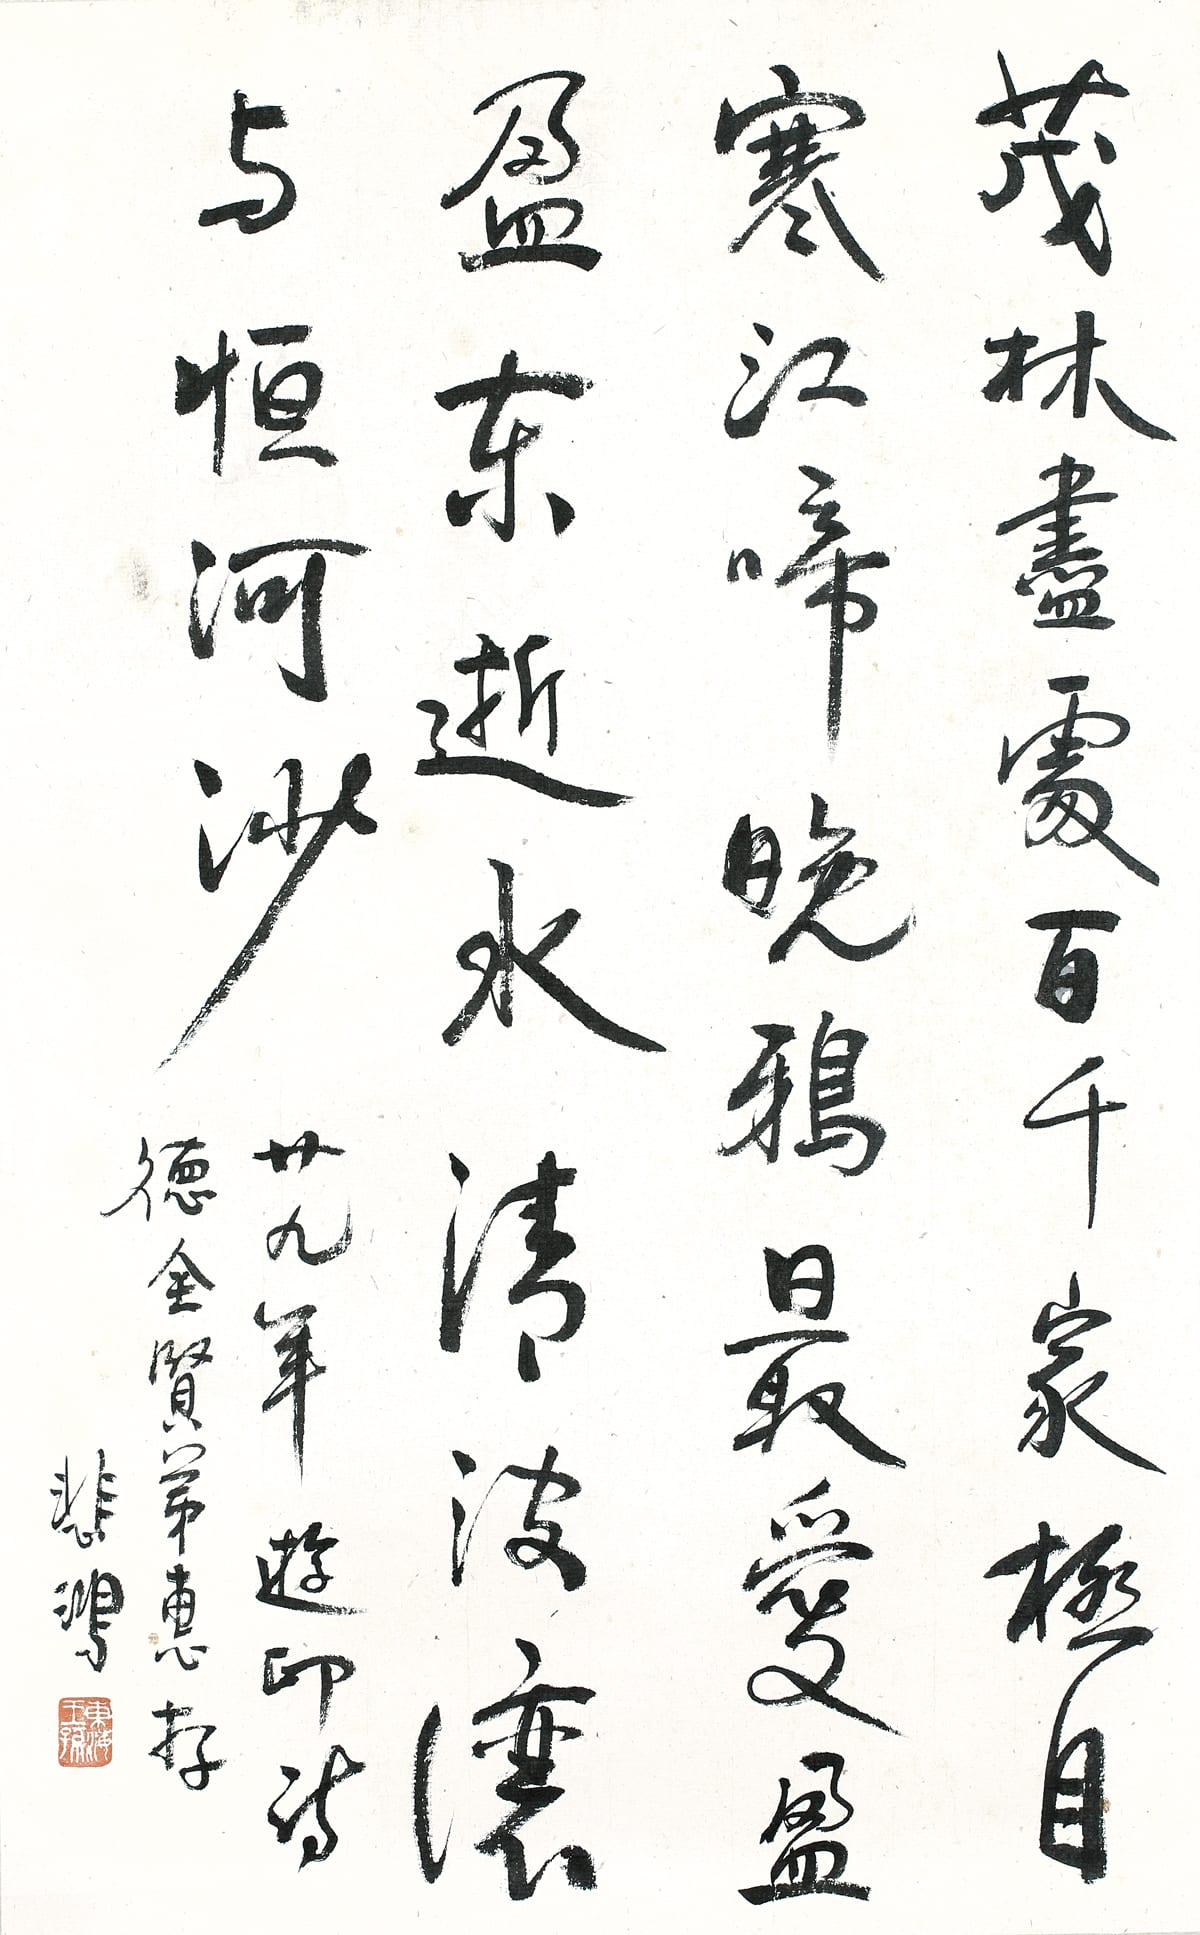 茂林盡處百千家極目
寒江啼晚鴉最愛盈
盈東逝水清波瀼
与恒河沙
廿九年遊印詩
德全賢弟惠存
悲鴻
東海王孫